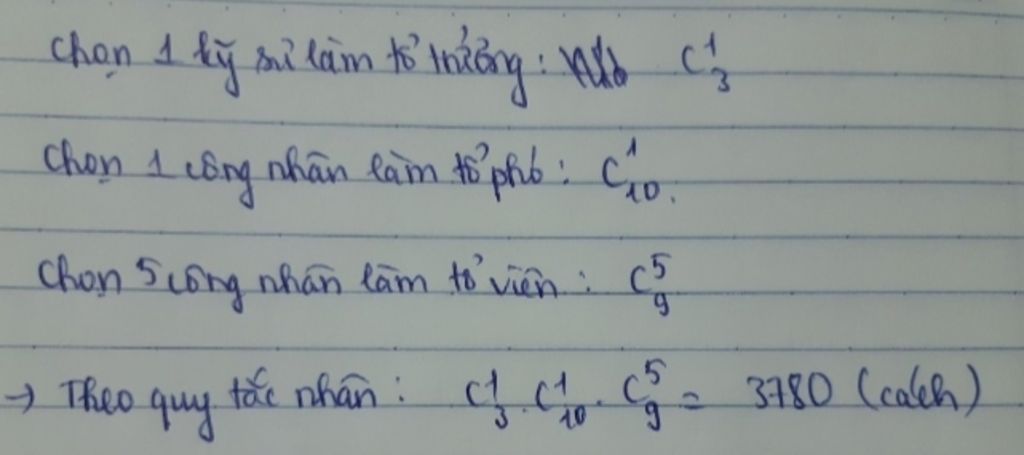 Chọn 1 kỹ sư làm tổ trưởng: C¹₃
Chọn 1 công nhân làm tổ phó: C¹₁₀.
Chọn 5 công nhân làm tổ viên: C⁵₉
→ Theo quy tắc nhân: C¹₃. C¹₁₀. C⁵₉ = 3780 (cách)